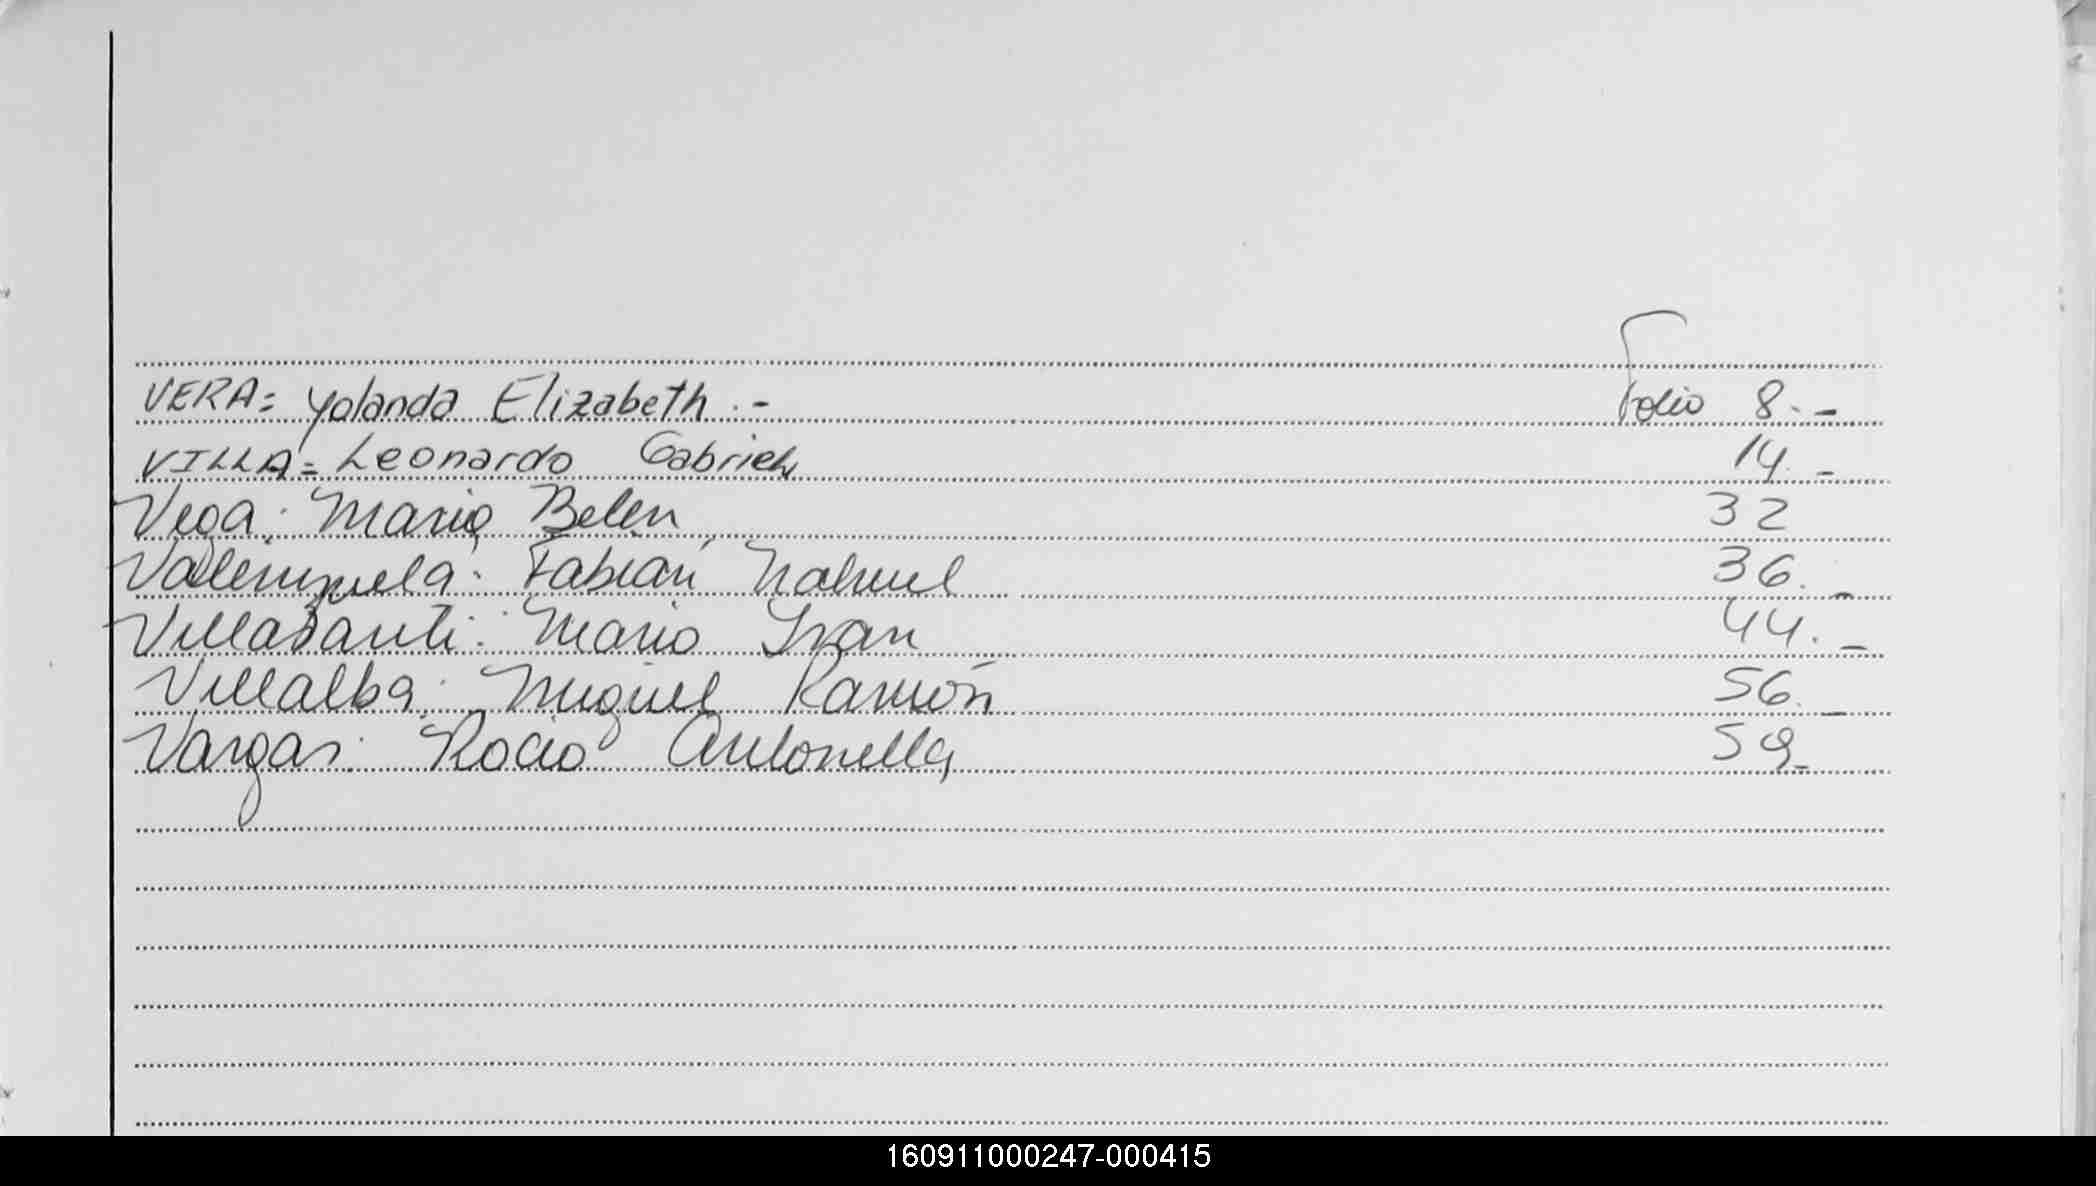 VERA= Yolanda Elizabeth.- Folio 8.-
VILLA= Leonardo Gabriel 14.-
Vega: Maria Belén 32
Valenzuela: Fabián Nahuel 36.-
Villasanti: Mario Ivan 44.-
Villalba: Miguel Ramón 56.-
Vargas: Rocio Antonella 59-
160911000247-000415